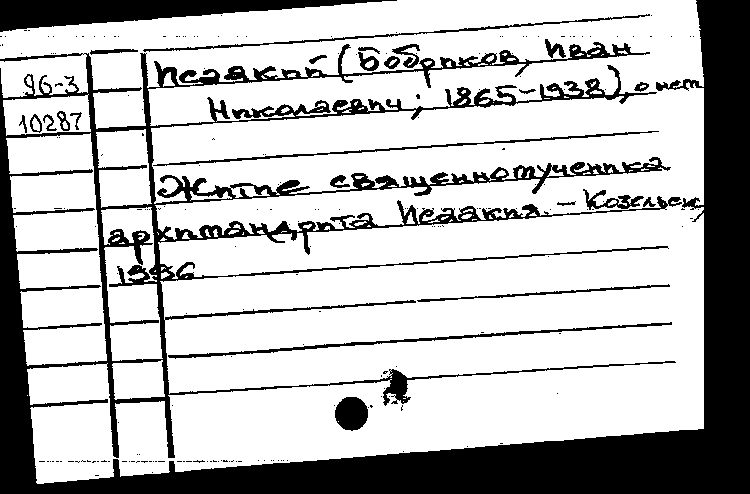 96-3
10287
Исаакий (Бобриков, Иван
Николаевич; 1865-1938), о нем
Житие священномученика
архимандрита Исаакия. - Козельск,
1996.